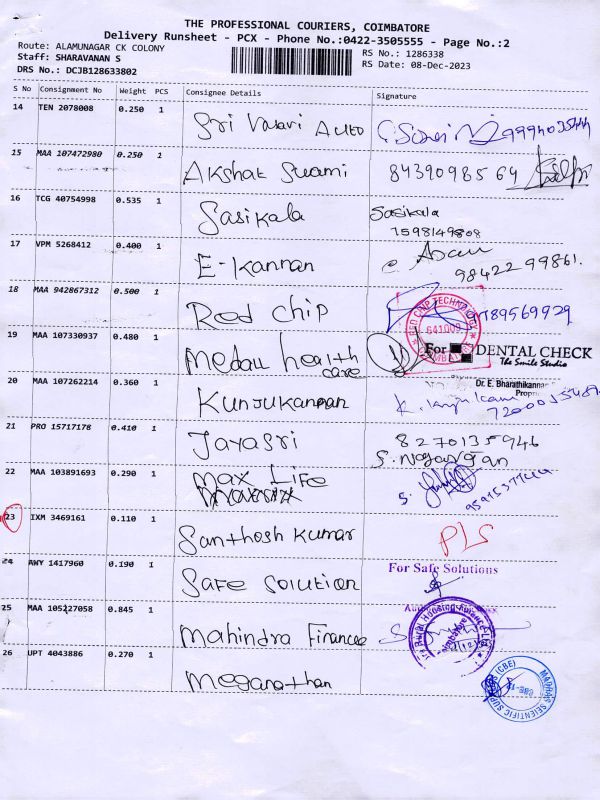 THE PROFESSIONAL COURIERS, COIMBATORE
Delivery Runsheet - PCX - Phone No.:0422-3505555 - Page No.:2
Route: ALAMUNAGAR CK COLONY
RS No.: 1286338
Staff: SHARAVANAN S
RS Date: 08-Dec-2023
DRS No.: DCJB128633802
S No Consignment No Weight PCS Consignee Details Signature
14 TEN 2078008 0.250 1 Sri Vasavi Auto
15 MAA 107472980 0.250 1 Akshat Swami 8439098564
16 TCG 40754998 0.535 1 Sasikala Sasikala
7598149808
17 VPM 5268412 0.400 1 E-Kannan
98422 99861.
18 MAA 942867312 0.500 1 Red Chip
RED CHIP TECHNOLOGY
641009
19 MAA 107330937 0.480 1 Medall health care
For DENTAL CHECK
The Smile Studio
Dr. E. Bharathikannan
20 MAA 107262214 0.360 1 Kunjukannan
21 PRO 15717178 0.410 1 Jayasri 8270135946
S. Nagarajan
22 MAA 103891693 0.290 1 Max Life
23 IXM 3469161 0.110 1 Santhosh Kumar PLS
24 AWY 1417960 0.190 1 Safe Solution
For Safe Solutions
25 MAA 105227058 0.845 1 Mahindra Finance
26 UPT 4043886 0.270 1 Meganathan
MADRAS SCIENTIFIC (CBE)